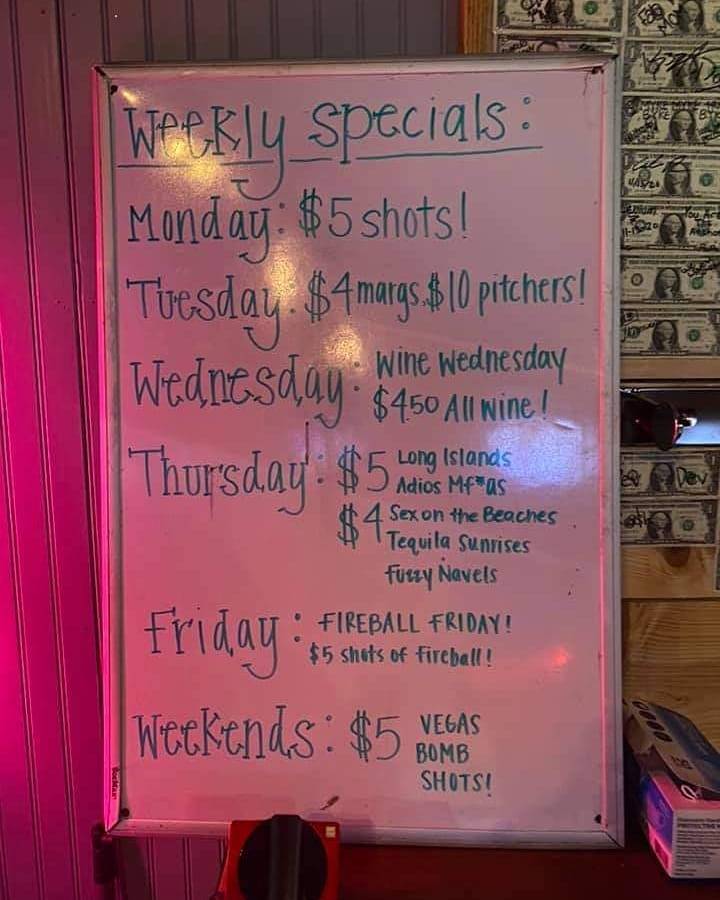 Weekly Specials:
Monday: $5 shots!
Tuesday: $4 margs, $10 pitchers!
Wednesday: Wine Wednesday
$4.50 All wine!
Thursday: $5 Long Islands
Adios Mf*as
$4 Sex on the Beaches
Tequila Sunrises
Fuzzy Navels
Friday: FIREBALL FRIDAY!
$5 shots of fireball!
Weekends: $5 VEGAS
BOMB
SHOTS!